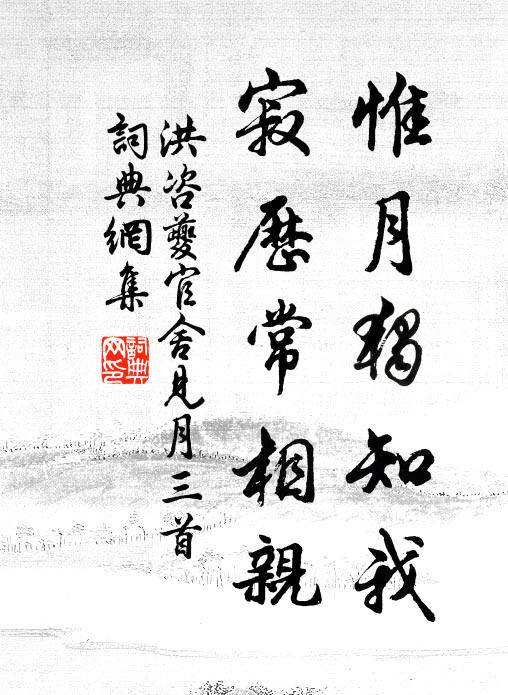 惟月獨知我
寂歷常相親
洪咨夔官舍見月三首
詞典網集
詞典網印